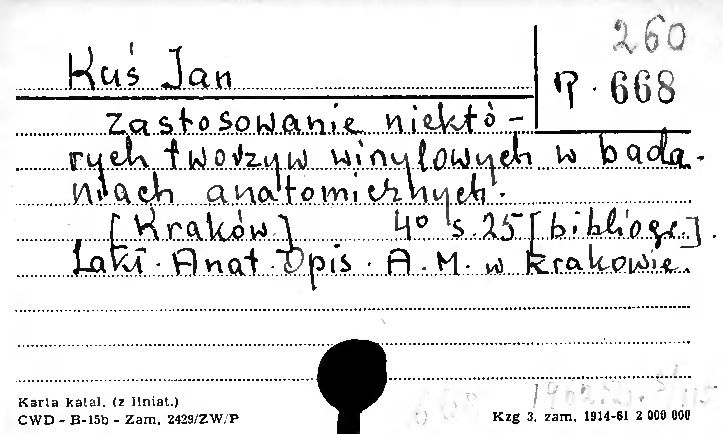 260
Kuś Jan
P. 668
Zastosowanie niektó-
rych tworzyw winylowych w bada-
niach anatomicznych.
[Kraków] 4° s. 25 [bibliogr.].
Zakł. Anat. Opis. A. M. w Krakowie.
668
Karta katal. (z liniat.)
CWD - B-15b - Zam. 2429/ZW/P
Kzg 3. zam. 1914-61 2 000 000